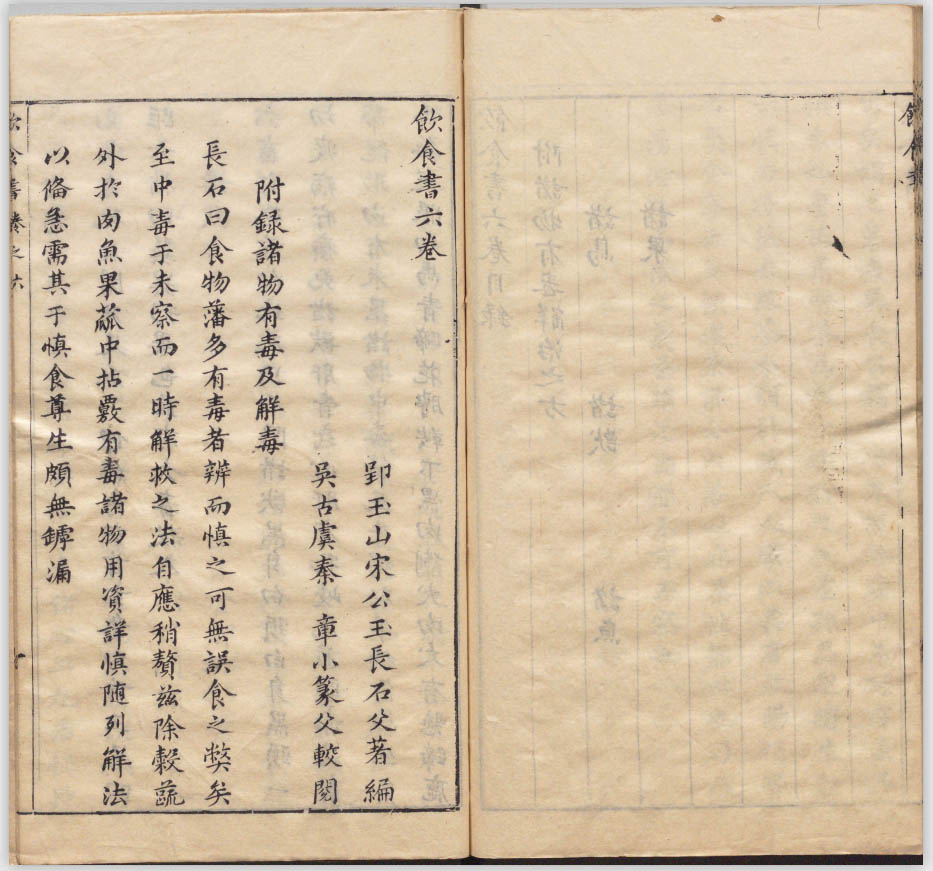 飲食書六卷
郢玉山宋公玉長石父著編
吳古虞秦 章小篆父較閱
附録諸物有毒及解毒
長石曰食物藩多有毒者辨而慎之可無誤食之獘矣
至中毒于未察而一時解救之法自應稍贅兹除糓蔬
外於肉魚果蓏中拈覈有毒諸物用資詳慎随列解法
以俻急需其于慎食尊生頗無罅漏
飲食書卷之六